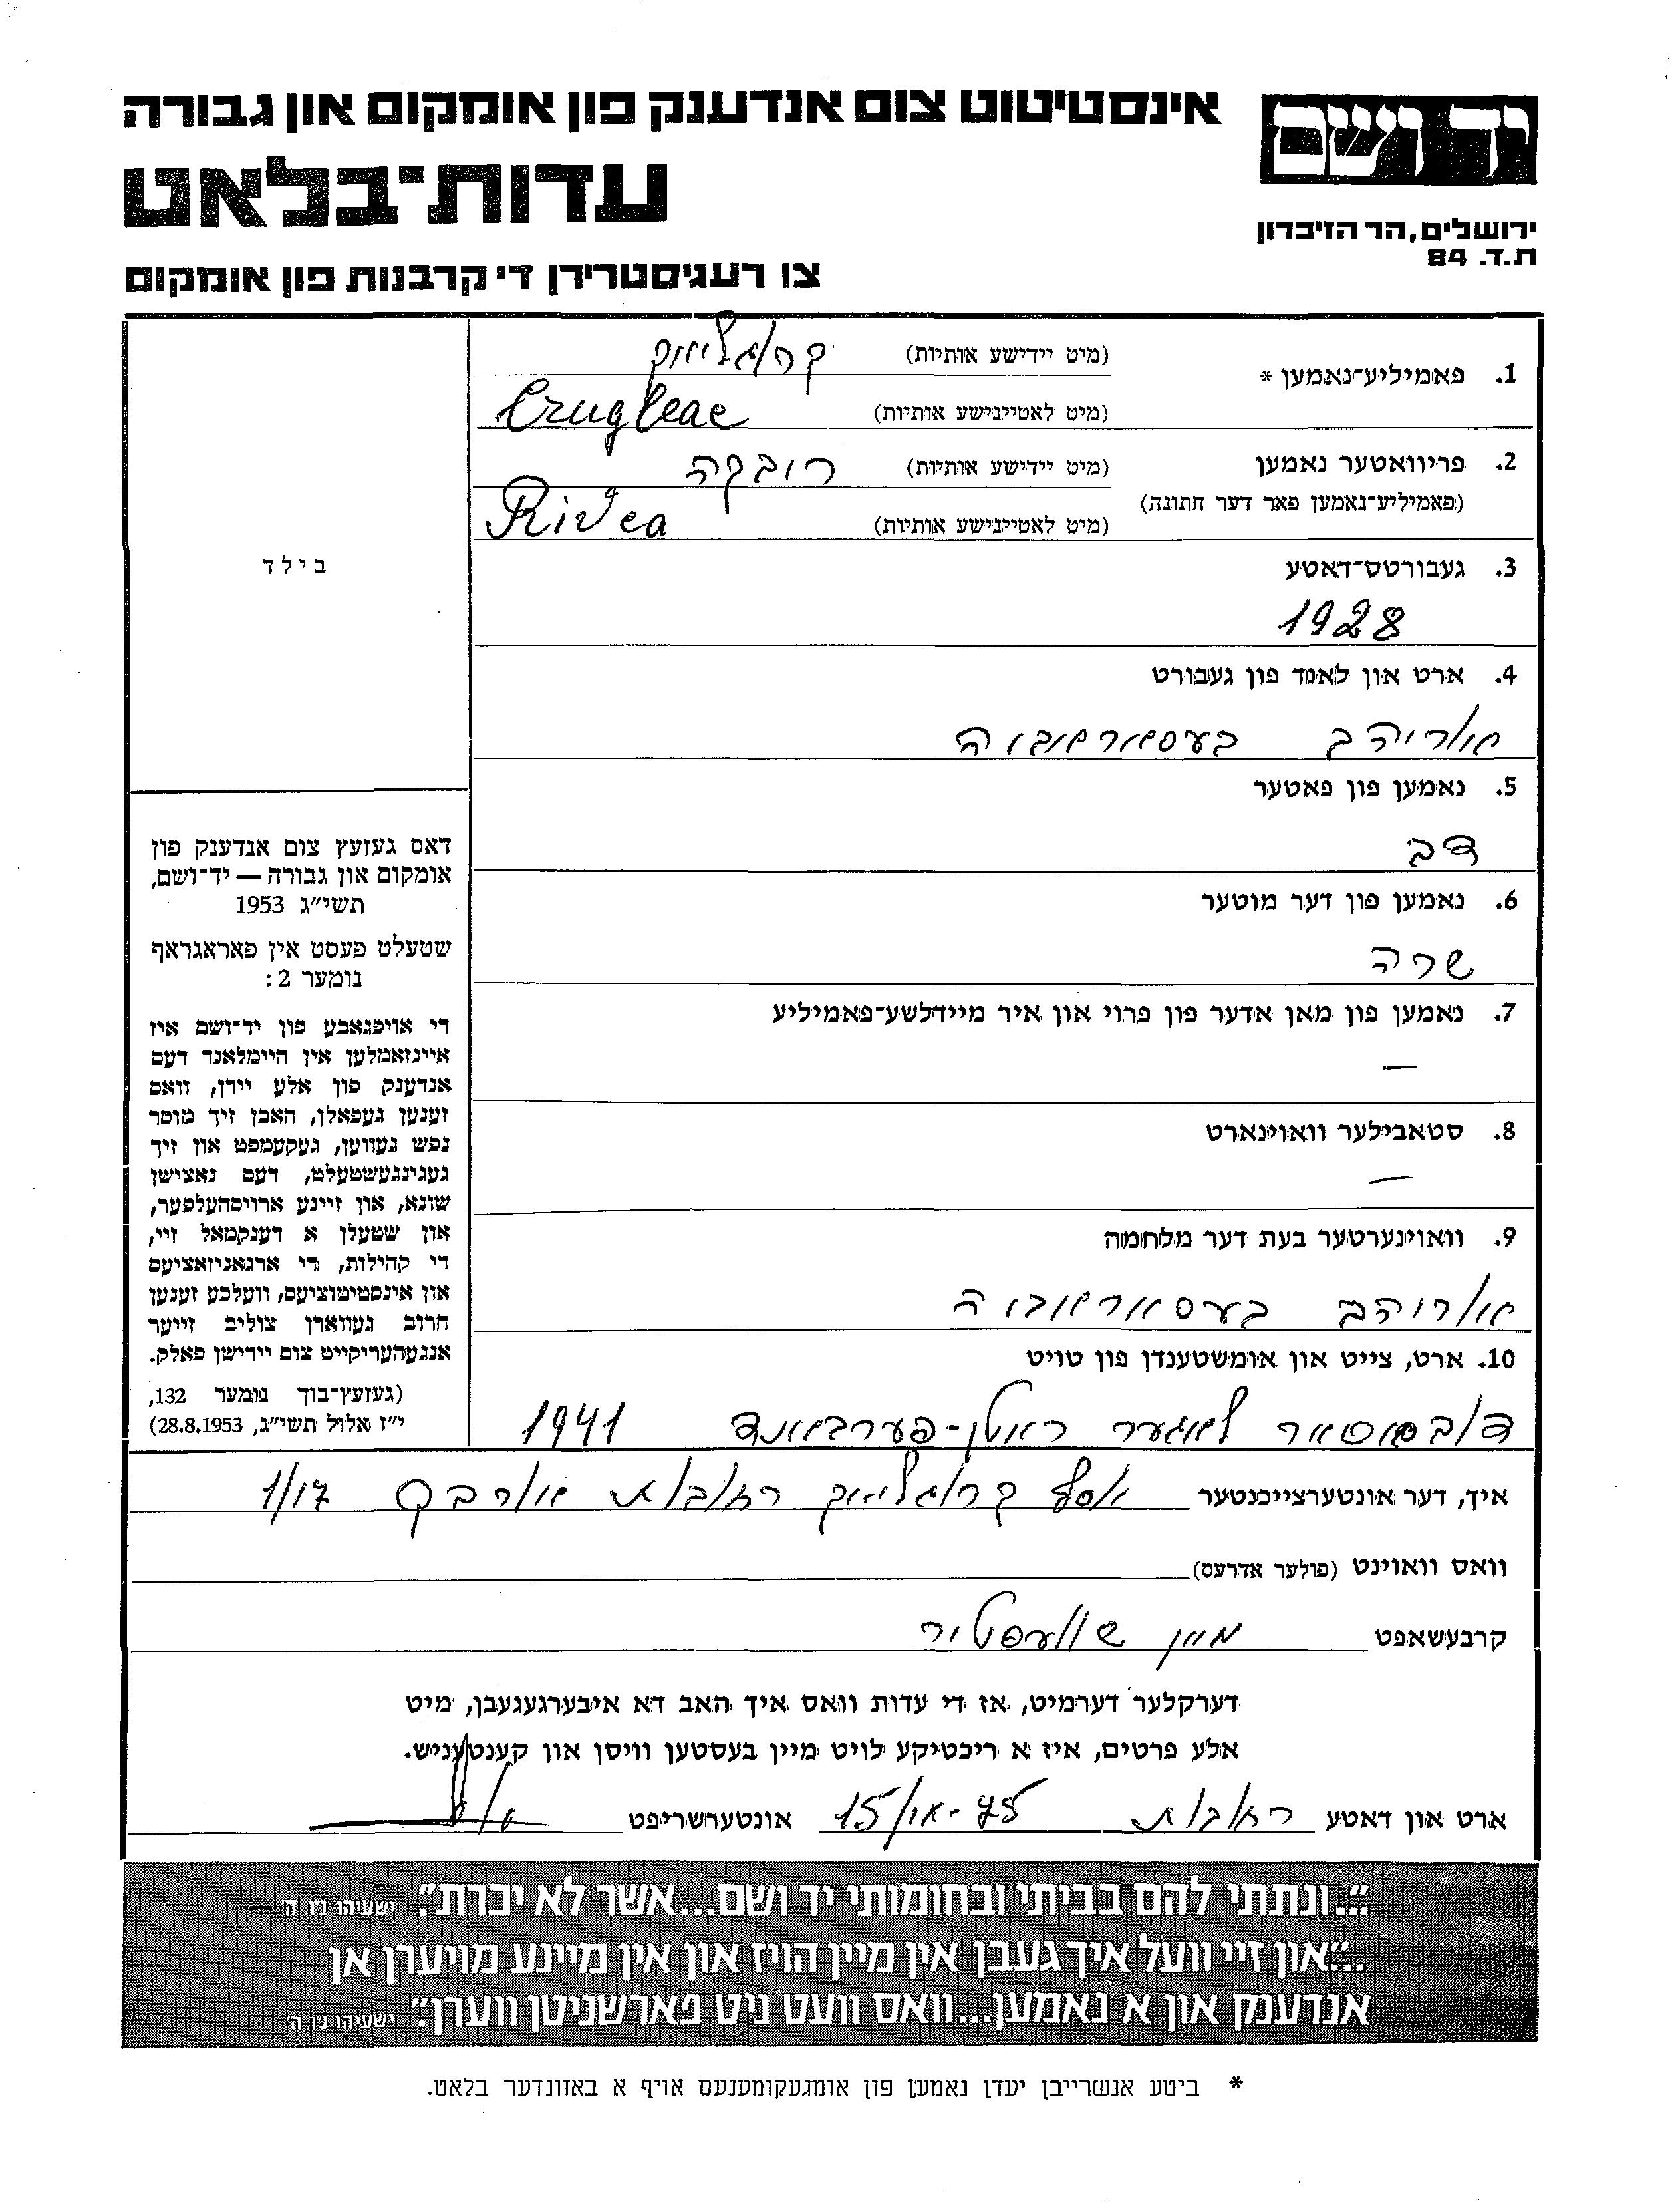 אינסטיטוט צום אנדענק פון אומקום און גבורה
עדות־בלאט
צו רעגיסטרירן די קרבנות פון אומקום
יד ושם
ירושלים, הר הזיכרון
ת.ד. 84
1. פאמיליע־נאמען *
(מיט יידישע אותיות) קרוגליאק
(מיט לאטייניישע אותיות) Crugleac
2. פריוואטער נאמען
(פאמיליע־נאמען פאר דער חתונה)
(מיט יידישע אותיות) רובקה
(מיט לאטייניישע אותיות) Rivca
3. געבורטס־דאטע
1928
4. ארט און לאנד פון געבורט
בעסאראובה
5. נאמען פון פאטער
דב
6. נאמען פון דער מוטער
שרה
7. נאמען פון מאן אדער פון פרוי און איר מיידלשע־פאמיליע
—
8. סטאבילער וואוינארט
—
9. וואוינערטער בעת דער מלחמה
בעסאראובה
10. ארט, צייט און אומשטענדן פון טויט
לאגער 1941
בילד
דאס געזעץ צום אנדענק פון
אומקום און גבורה — יד־ושם,
תשי״ג 1953
שטעלט פעסט אין פאראגראף
נומער 2:
די אויפגאבע פון יד־ושם איז
איינזאמלען אין היימלאנד דעם
אנדענק פון אלע יידן, וואס
זענען געפאלן, האבן זיך מוסר
נפש געווען, געקעמפט און זיך
געגינגעשטעלט, דעם נאצישן
שונא, און זיינע ארויסהעלפער,
און שטעלן א דענקמאל זיי,
די קהילות, די ארגאניזאציעס
און אינסטיטוציעס, וועלכע זענען
חרוב געווארן צוליב זייער
אנגעהעריקייט צום יידישן פאלק.
(געזעץ־בוך נומער 132,
י״ז אלול תשי״ג, 28.8.1953)
איך, דער אונטערצייכנטער אסף קרוגליאק רחובות 1/17
וואס וואוינט (פולער אדרעס)
קרבעשאפט מיין שוועסטיר
דערקלער דערמיט, אז די עדות וואס איך האב דא איבערגעגעבן, מיט
אלע פרטים, איז א ריכטיקע לויט מיין בעסטען וויסן און קענטעניש.
ארט און דאטע רחובות אונטערשריפט
״...ונתתי להם בביתי ובחומותי יד ושם...אשר לא יכרת״. ישעיהו נ״ו ה׳
״...און זיי וועל איך געבן אין מיין הויז און אין מיינע מויערן אן
אנדענק און א נאמען...וואס וועט ניט פארשניטן ווערן״. ישעיהו נ״ו ה׳
* ביטע אנשרייבן יעדן נאמען פון אומגעקומענעם אויף א באזונדער בלאט.